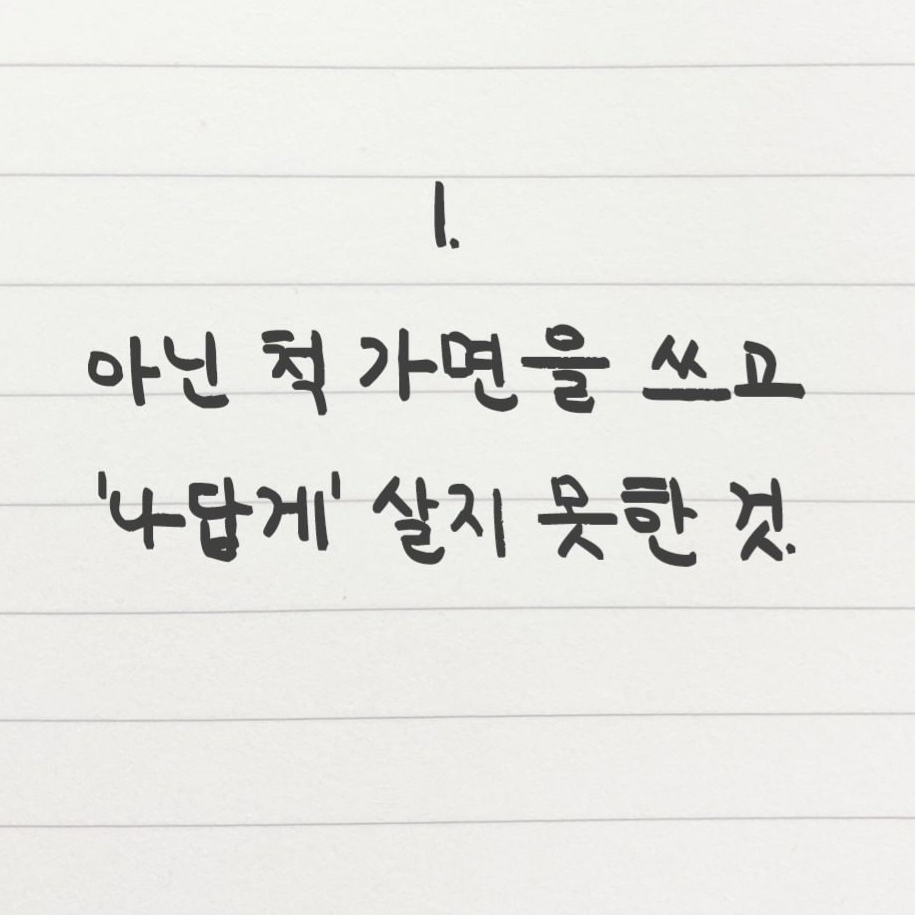 1.
아닌 척 가면을 쓰고
'나답게' 살지 못한 것.